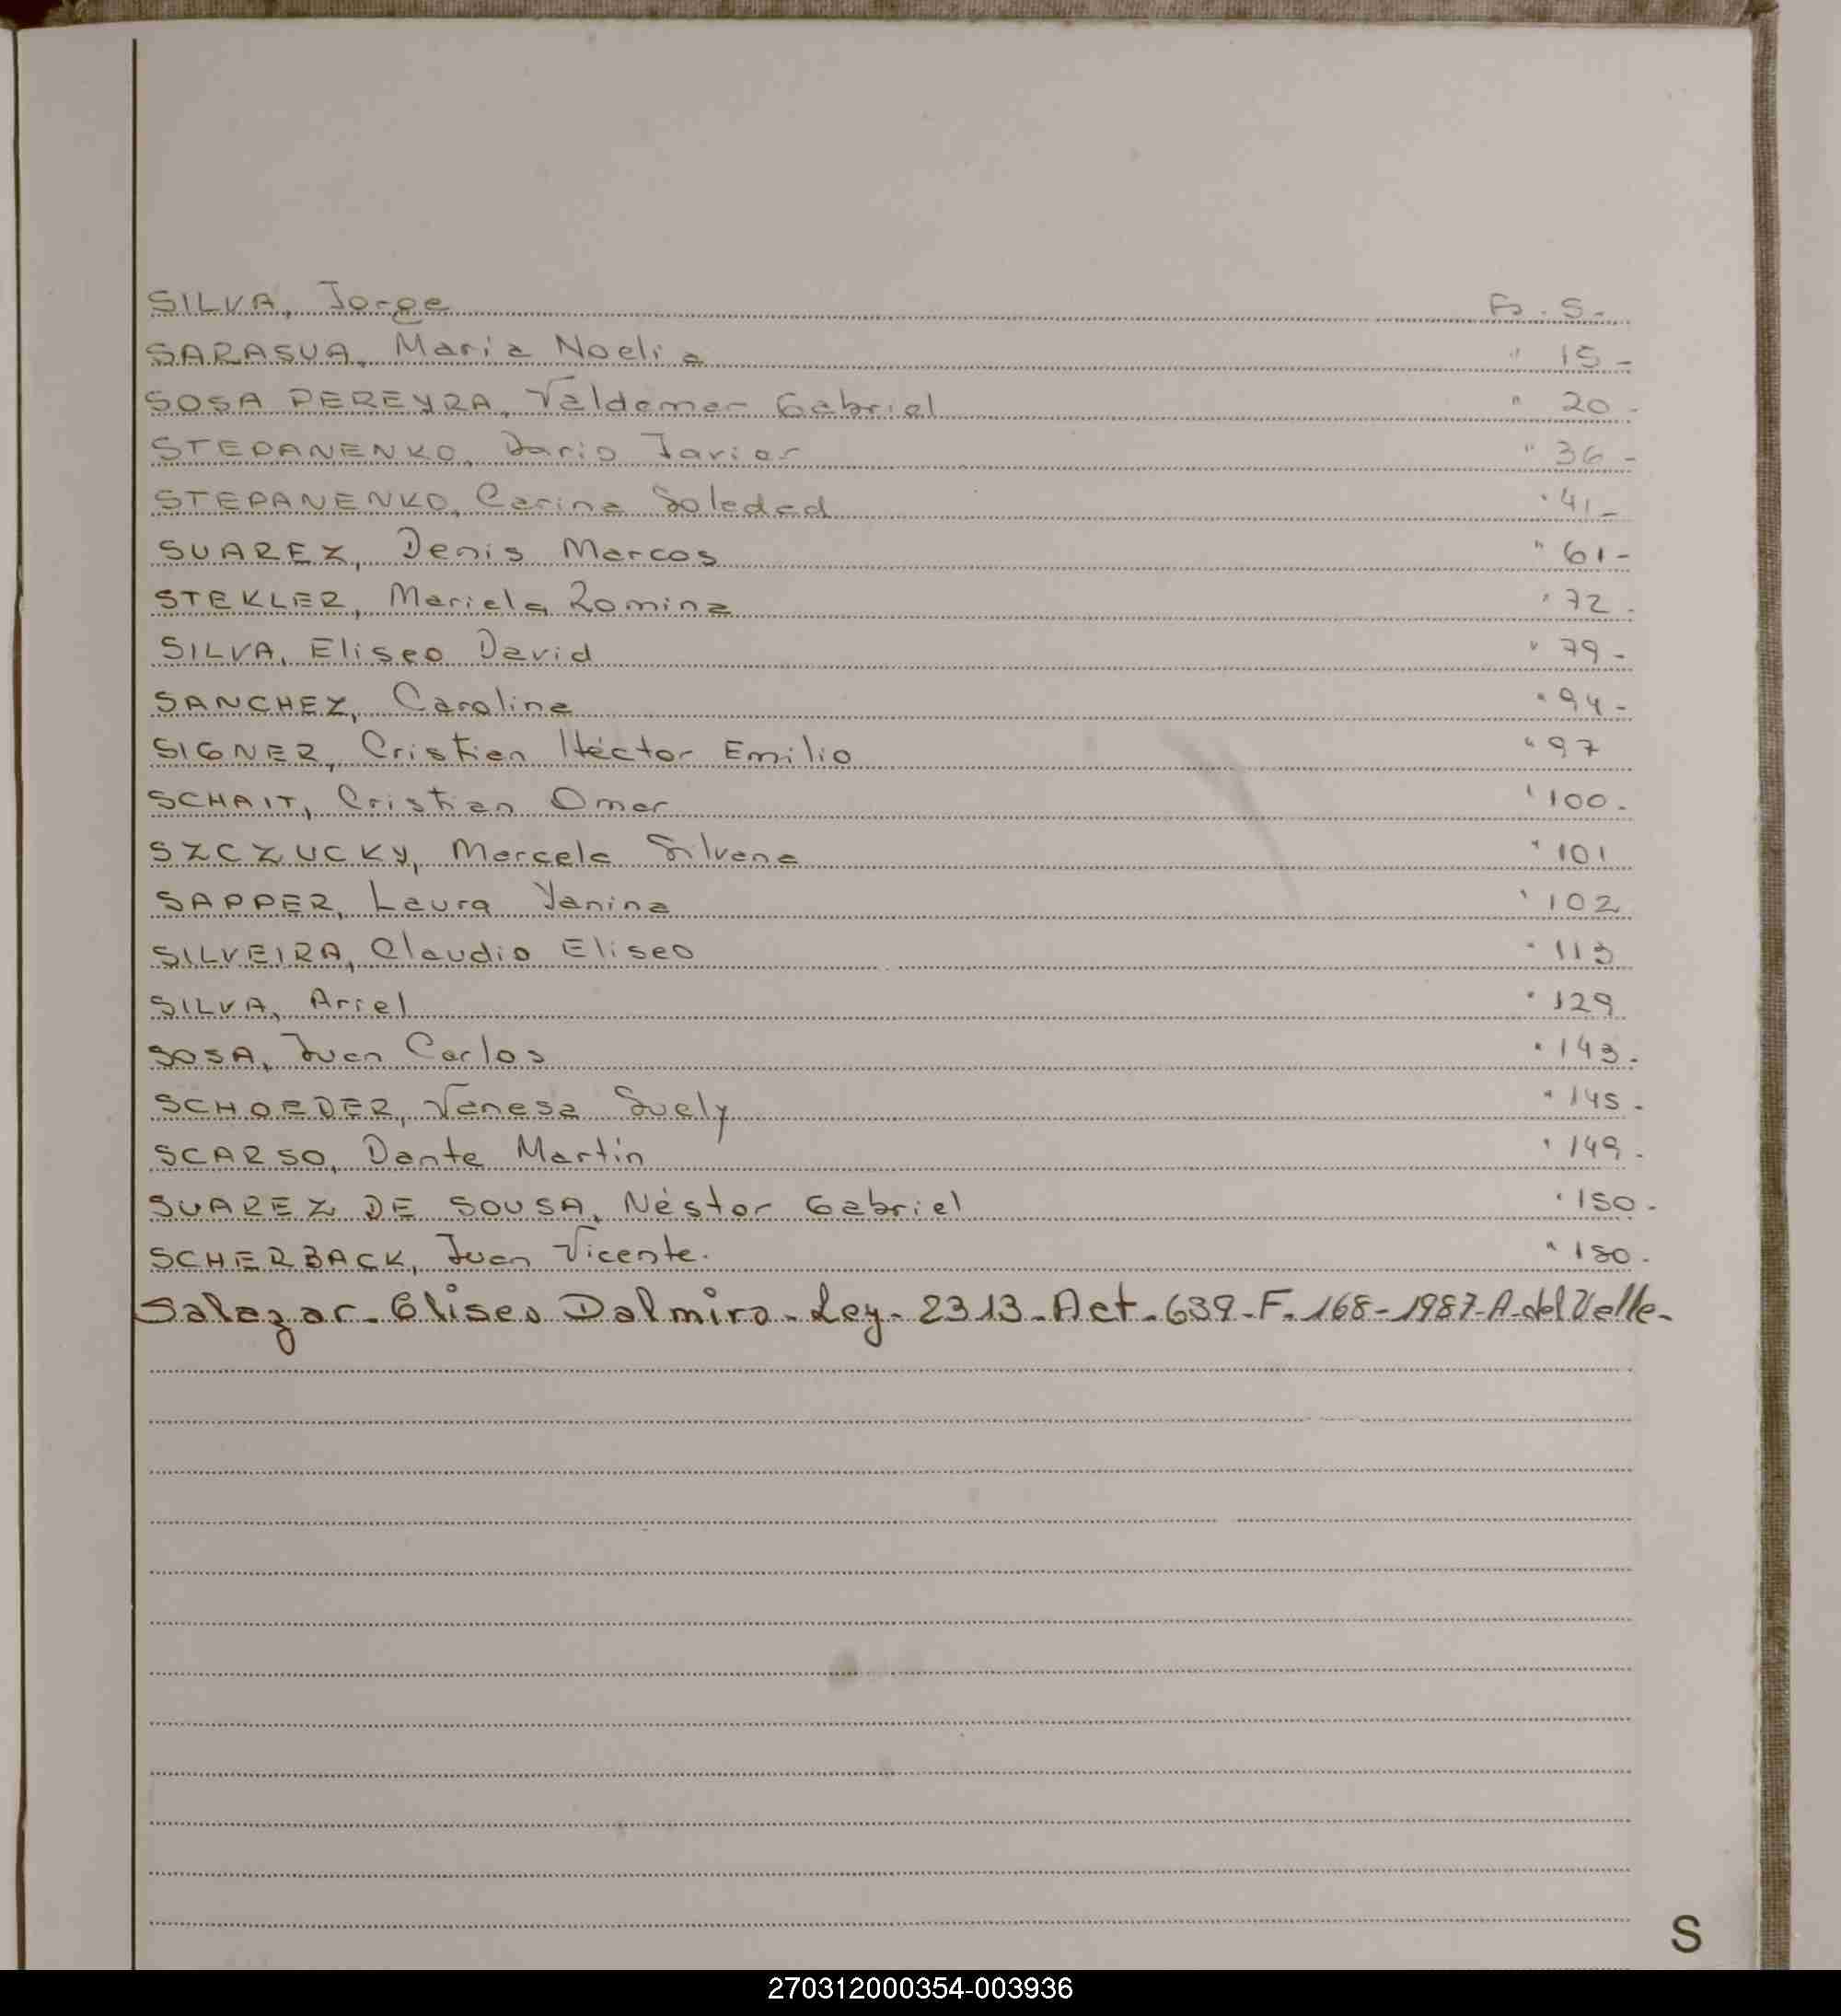 SILVA, Jorge Fo. 5-
SARASUA, Maria Noelia " 15-
SOSA PEREYRA, Valdemar Gabriel " 20-
STEPANENKO, Dario Javier " 36-
STEPANENKO, Carina Soledad " 41-
SUAREZ, Denis Marcos " 61-
STEKLER, Mariela Romina " 72.
SILVA, Eliseo David " 79-
SANCHEZ, Carolina " 94-
SIGNER, Cristian Héctor Emilio " 97
SCHAIT, Cristian Omar " 100.
SZCZUCKY, Marcela Silvana " 101
SAPPER, Laura Yanina " 102
SILVEIRA, Claudio Eliseo " 113
SILVA, Ariel " 129
SOSA, Juan Carlos " 143.
SCHOEDER, Vanesa Suely " 145.
SCARSO, Dante Martín " 149.
SUAREZ DE SOUSA, Néstor Gabriel " 150.
SCHERBACK, Juan Vicente. " 180.
Salazar-Eliseo Dalmiro-Ley-2313-Act-639-F.168-1987-A-del Valle-
S
270312000354-003936